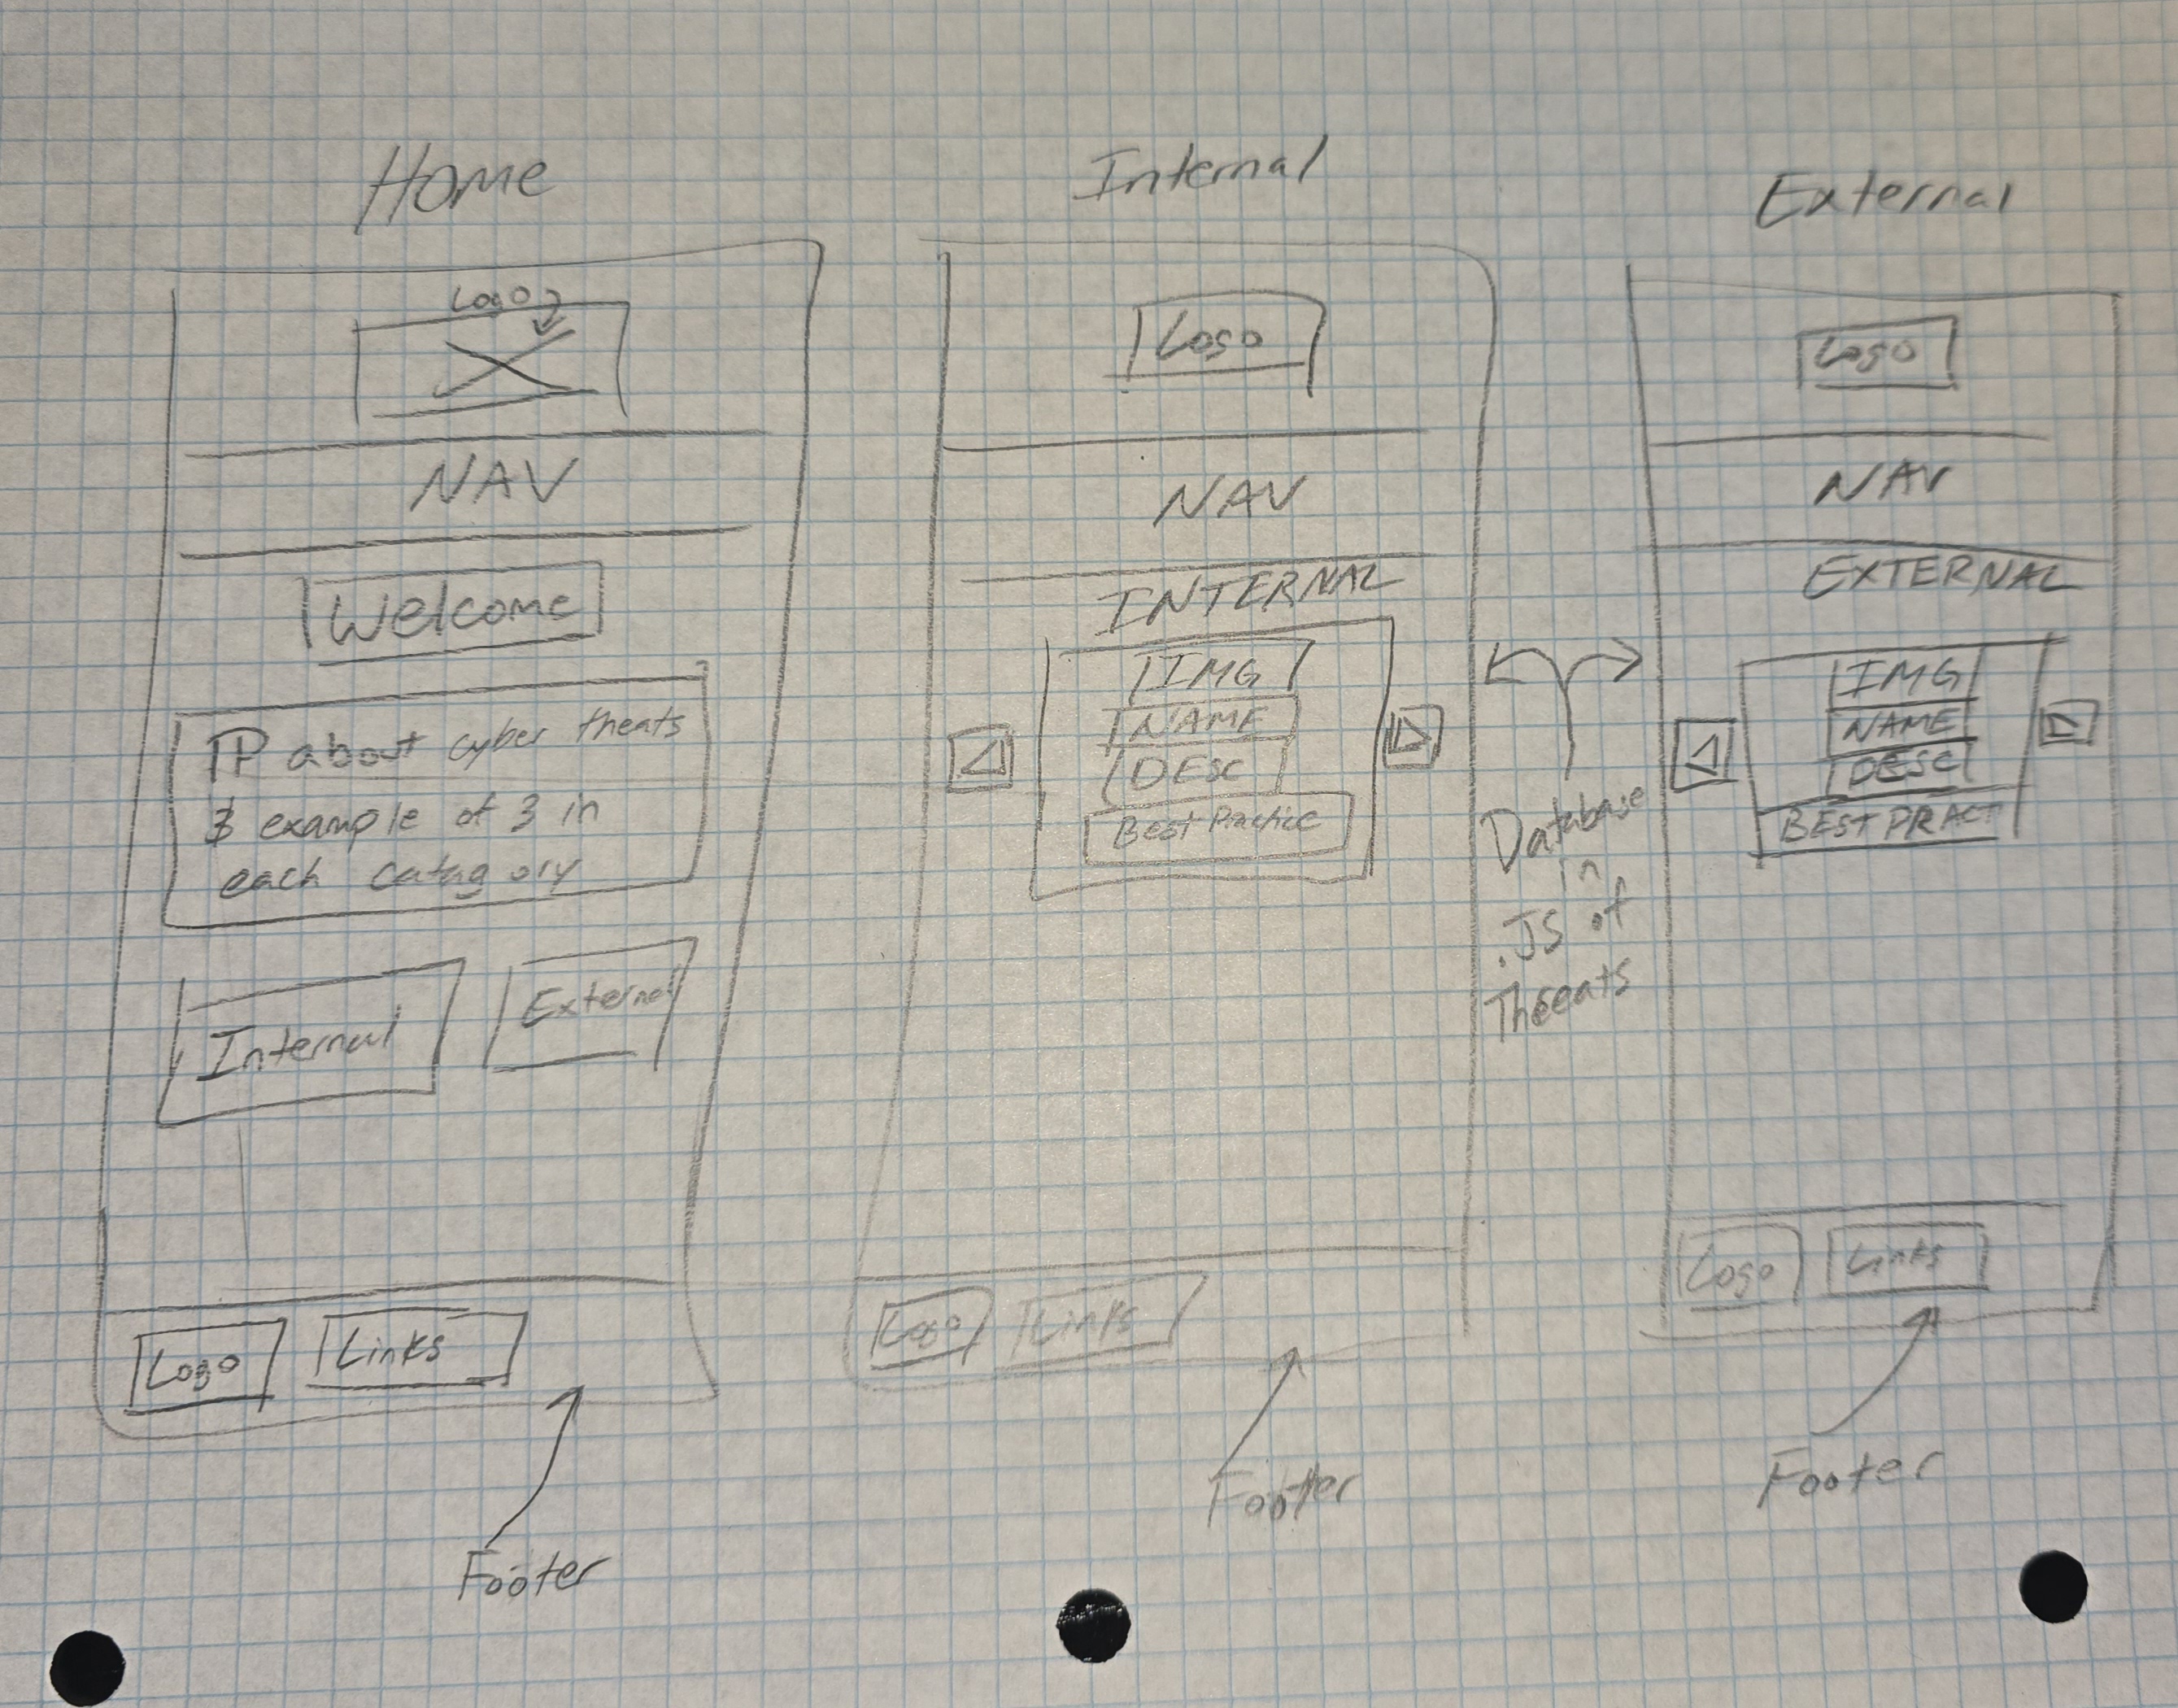 Home
Logo
NAV
Welcome
P about cyber theats
& example of 3 in
each catagory
Internal
External
Logo
Links
Footer
Internal
Logo
NAV
INTERNAL
IMG
NAME
DESC
Best Practice
Logo
Links
Footer
Database
in
.JS of
Threats
External
Logo
NAV
EXTERNAL
IMG
NAME
DESC
BEST PRACT
Logo
Links
Footer